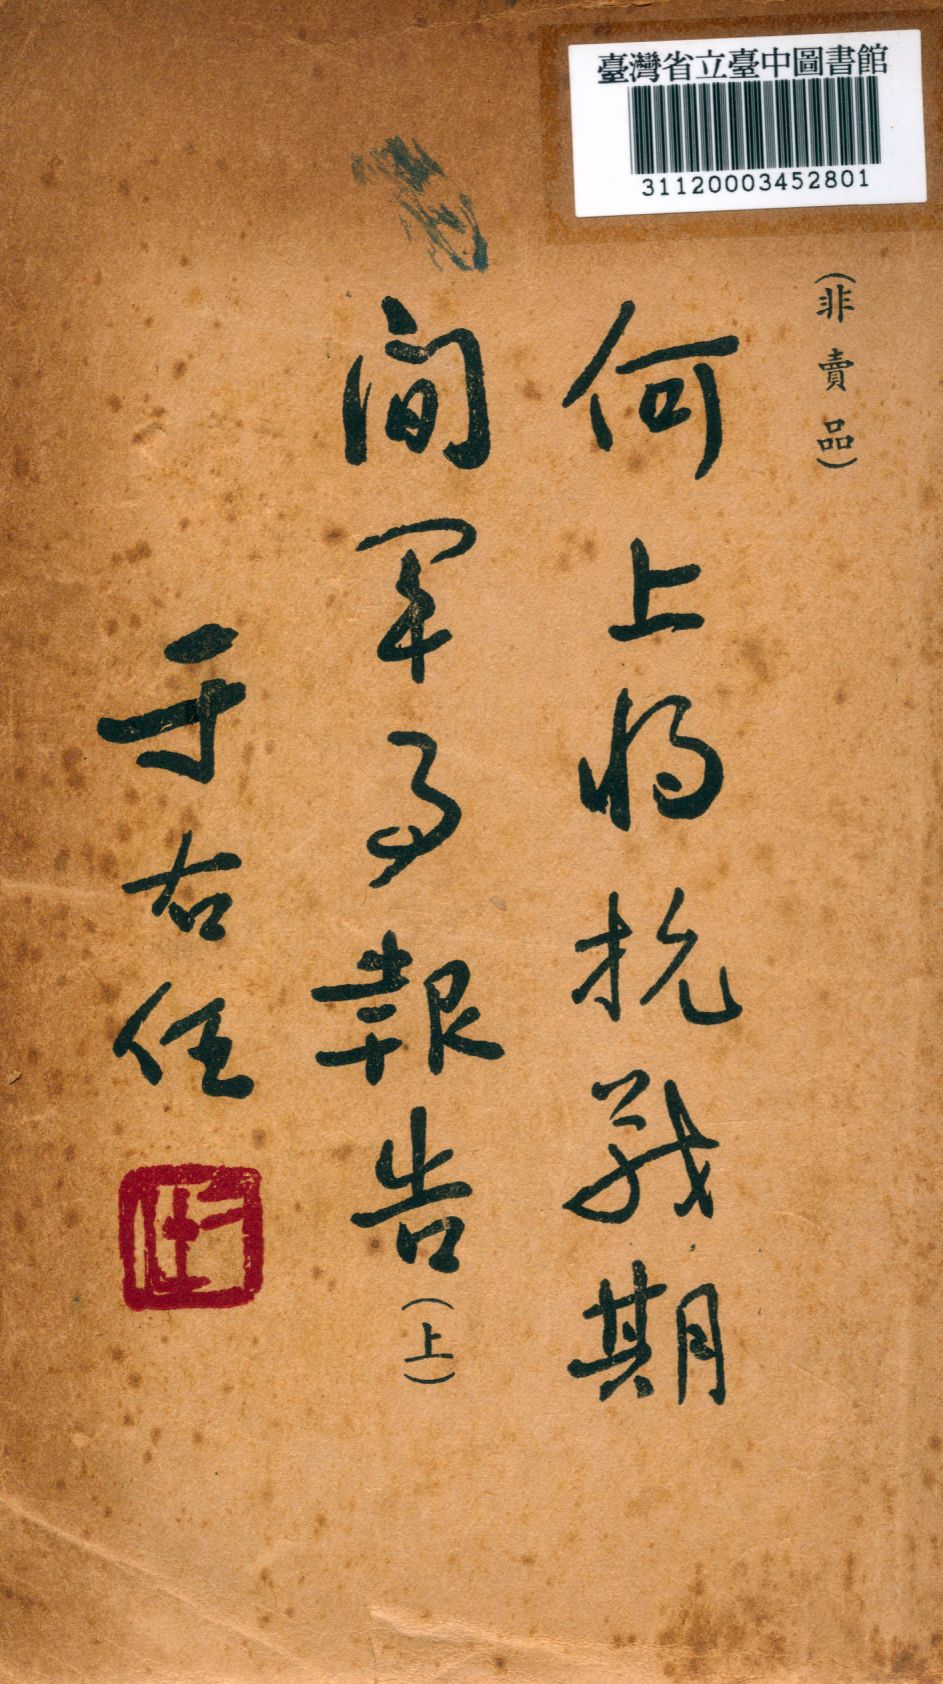 臺灣省立臺中圖書館
31120003452801
（非賣品）
何上将抗戰期
间军事報告（上）
于右任